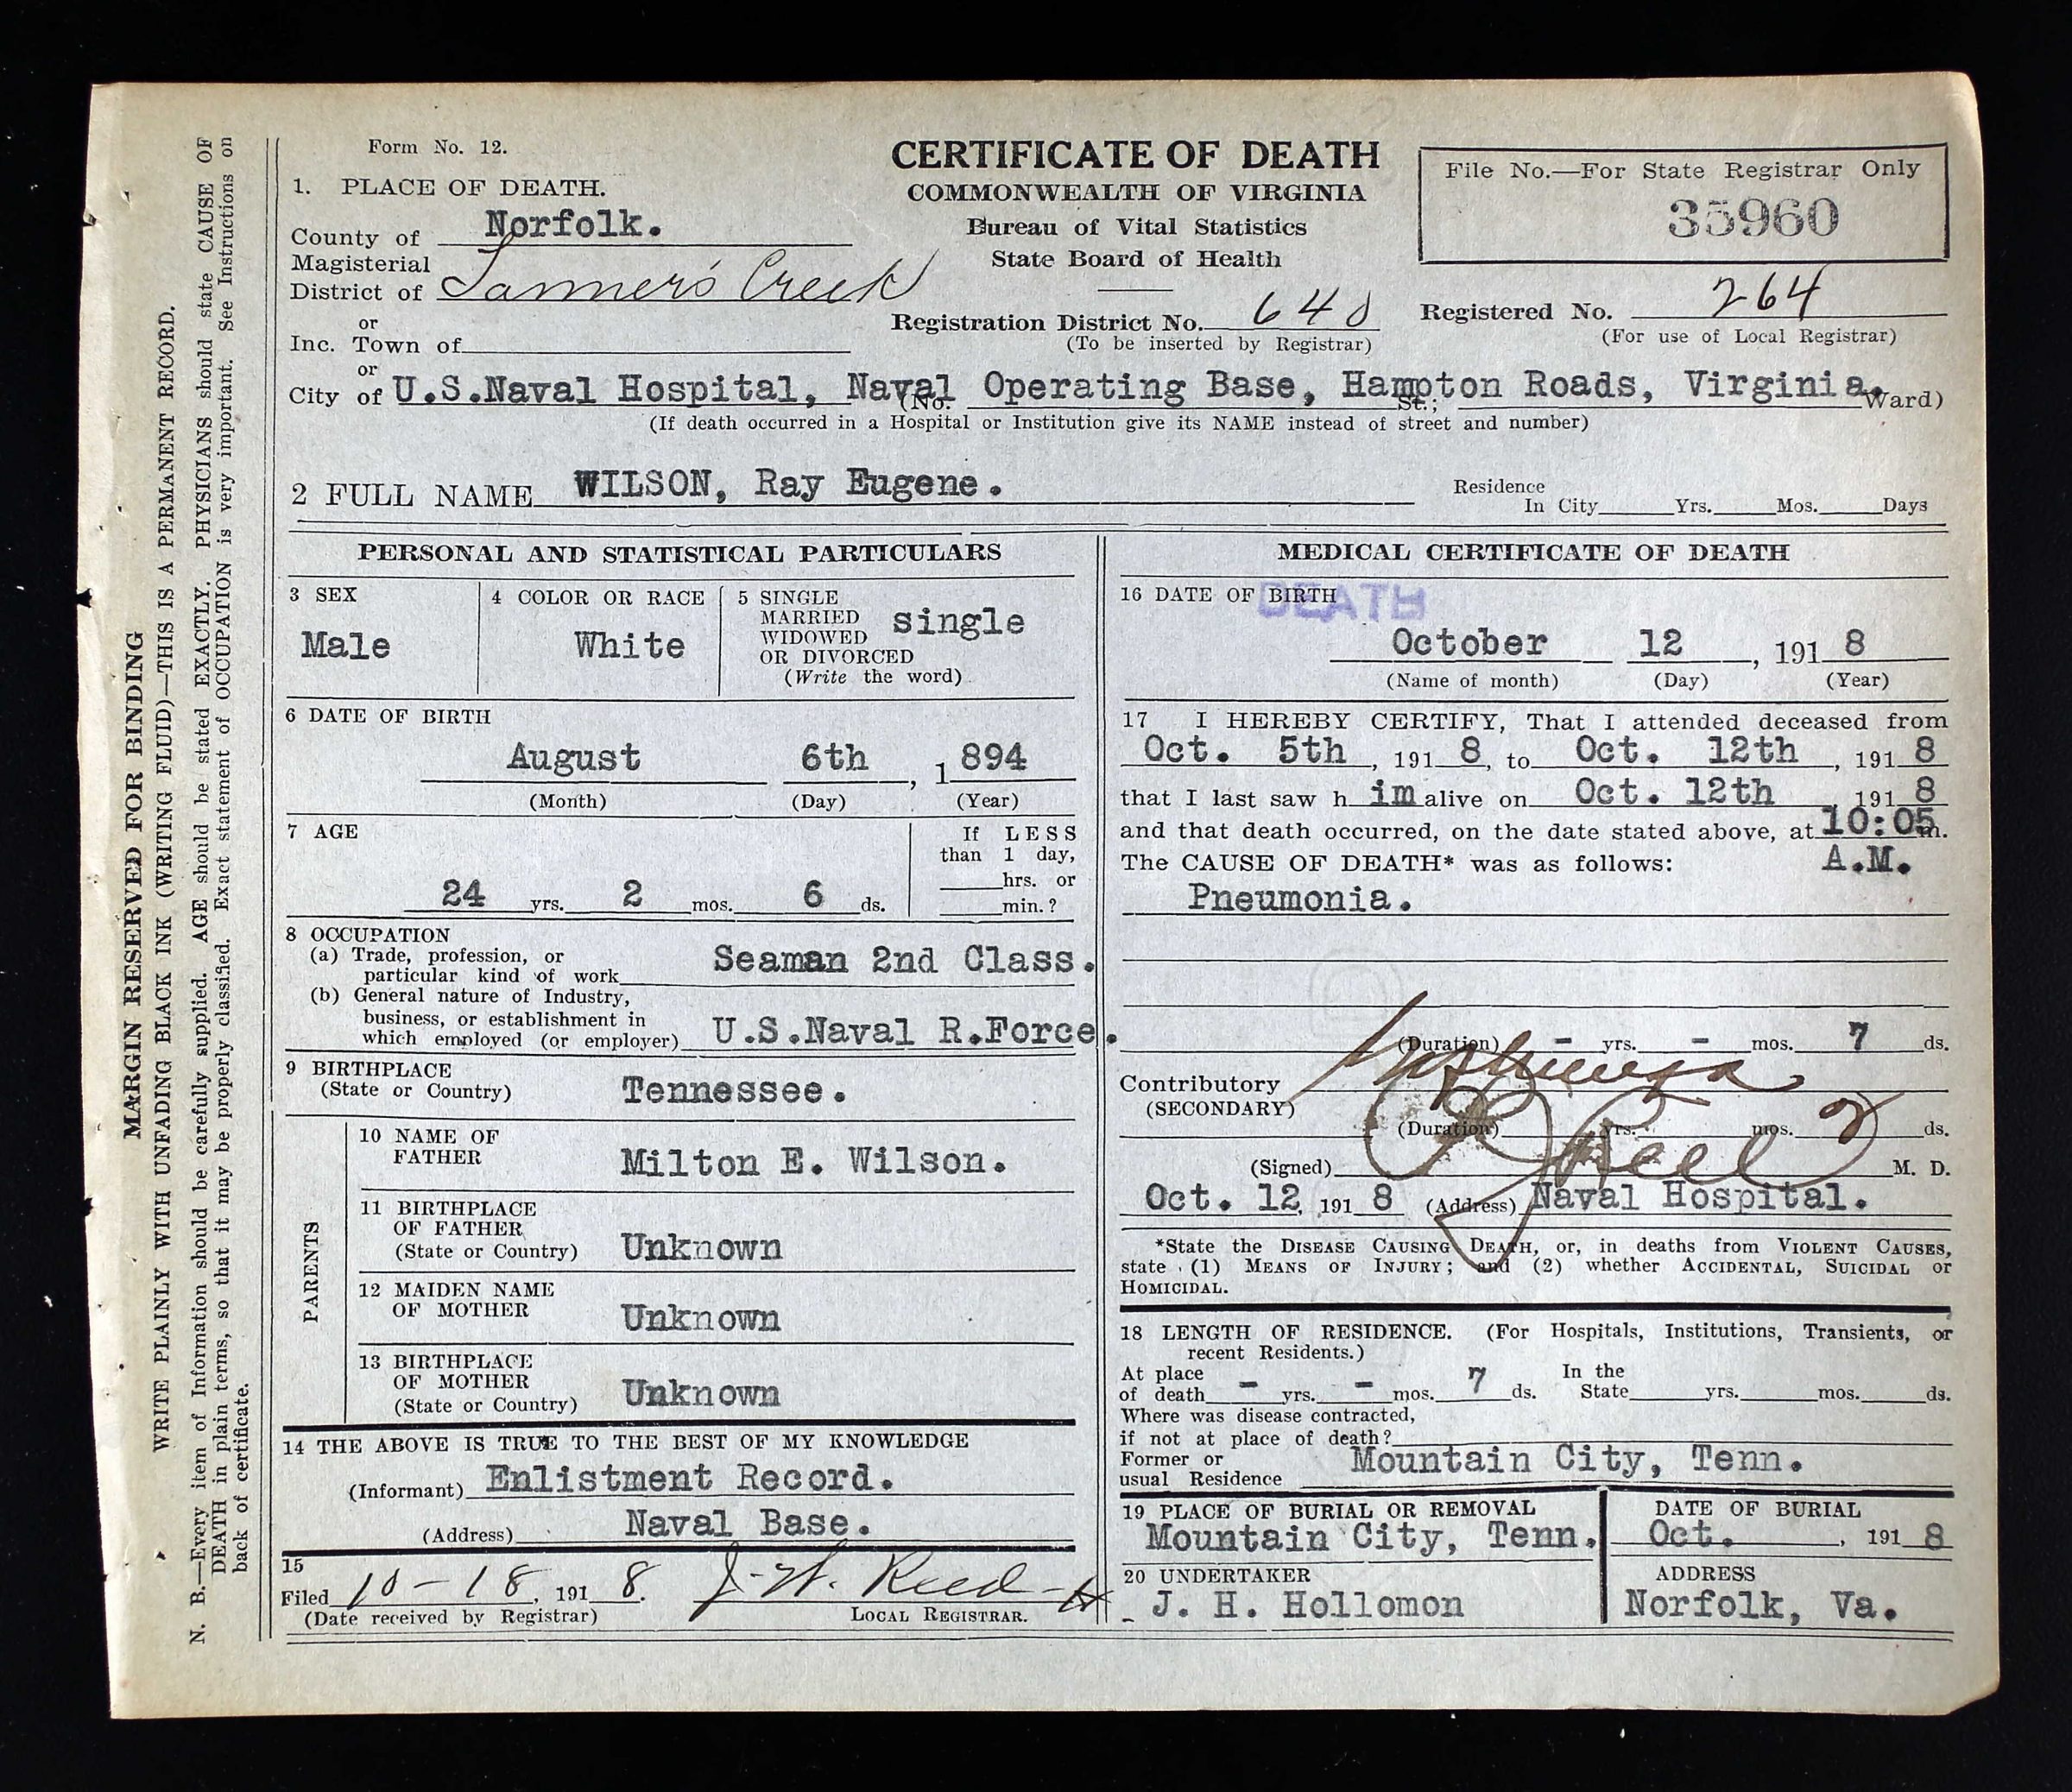 MARGIN RESERVED FOR BINDING
WRITE PLAINLY WITH UNFADING BLACK INK (WRITING FLUID)—THIS IS A PERMANENT RECORD.
N. B.—Every item of Information should be carefully supplied. AGE should be stated EXACTLY. PHYSICIANS should state CAUSE OF
DEATH in plain terms, so that it may be properly classified. Exact statement of OCCUPATION is very important. See Instructions on
back of certificate.
Form No. 12.
CERTIFICATE OF DEATH
COMMONWEALTH OF VIRGINIA
Bureau of Vital Statistics
State Board of Health
File No.—For State Registrar Only
35960
1. PLACE OF DEATH.
County of Norfolk.
Magisterial
District of Tanner's Creek
or
Inc. Town of
Registration District No. 640
(To be inserted by Registrar)
Registered No. 264
(For use of Local Registrar)
or
City of U.S.Naval Hospital, Naval Operating Base, Hampton Roads, Virginia.
(No. St.; Ward)
(If death occurred in a Hospital or Institution give its NAME instead of street and number)
2 FULL NAME WILSON, Ray Eugene.
Residence
In City Yrs. Mos. Days
PERSONAL AND STATISTICAL PARTICULARS
3 SEX
Male
4 COLOR OR RACE
White
5 SINGLE
MARRIED
WIDOWED
OR DIVORCED
(Write the word)
single
6 DATE OF BIRTH
August 6th, 1894
(Month) (Day) (Year)
7 AGE
24 yrs. 2 mos. 6 ds.
If LESS
than 1 day,
hrs. or
min.?
8 OCCUPATION
(a) Trade, profession, or
particular kind of work Seaman 2nd Class.
(b) General nature of Industry,
business, or establishment in
which employed (or employer) U.S.Naval R.Force.
9 BIRTHPLACE
(State or Country) Tennessee.
PARENTS
10 NAME OF
FATHER Milton E. Wilson.
11 BIRTHPLACE
OF FATHER
(State or Country) Unknown
12 MAIDEN NAME
OF MOTHER Unknown
13 BIRTHPLACE
OF MOTHER
(State or Country) Unknown
14 THE ABOVE IS TRUE TO THE BEST OF MY KNOWLEDGE
(Informant) Enlistment Record.
(Address) Naval Base.
15
Filed 10-18, 1918. J. W. Reed
(Date received by Registrar) LOCAL REGISTRAR.
MEDICAL CERTIFICATE OF DEATH
16 DATE OF BIRTH DEATH
October 12, 1918
(Name of month) (Day) (Year)
17 I HEREBY CERTIFY, That I attended deceased from
Oct. 5th, 1918, to Oct. 12th, 1918
that I last saw h im alive on Oct. 12th, 1918
and that death occurred, on the date stated above, at 10:05 m.
The CAUSE OF DEATH* was as follows: A.M.
Pneumonia.
(Duration) - yrs. - mos. 7 ds.
Contributory
(SECONDARY)
(Duration) yrs. mos. ds.
(Signed) M. D.
Oct. 12, 1918 (Address) Naval Hospital.
*State the DISEASE CAUSING DEATH, or, in deaths from VIOLENT CAUSES,
state (1) MEANS OF INJURY; and (2) whether ACCIDENTAL, SUICIDAL or
HOMICIDAL.
18 LENGTH OF RESIDENCE. (For Hospitals, Institutions, Transients, or
recent Residents.)
At place In the
of death - yrs. - mos. 7 ds. State yrs. mos. ds.
Where was disease contracted,
if not at place of death?
Former or
usual Residence Mountain City, Tenn.
19 PLACE OF BURIAL OR REMOVAL
Mountain City, Tenn.
DATE OF BURIAL
Oct. , 1918
20 UNDERTAKER
J. H. Hollomon
ADDRESS
Norfolk, Va.